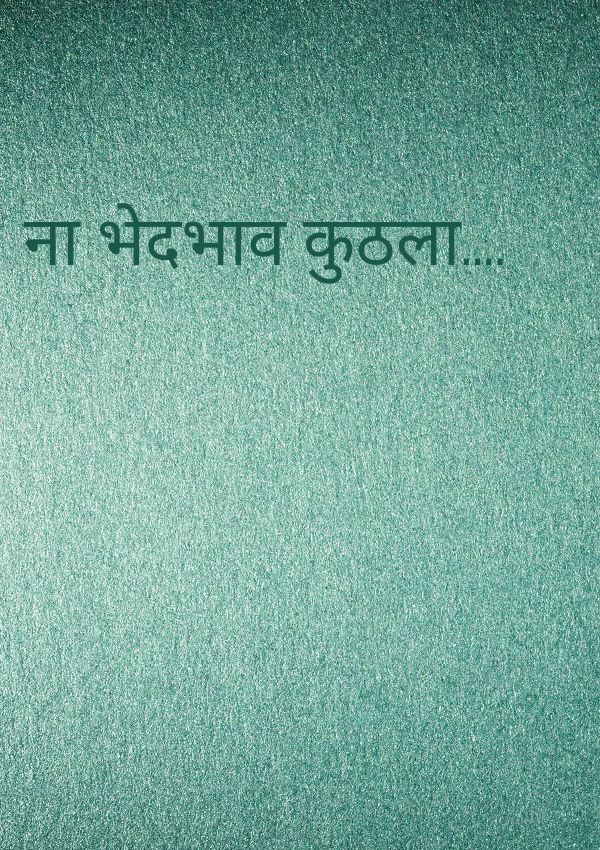 ना भेदभाव कुठला....